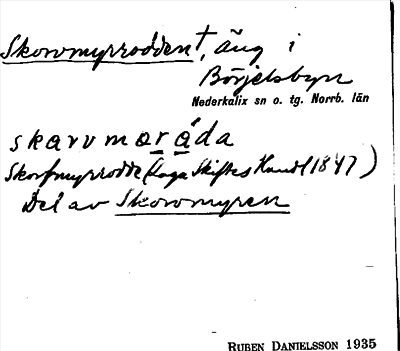 Skorvmyrrodden†, äng i
Börjelsbyn
Nederkalix sn o. tg. Norrb. län
skarvmaráda
Skorfmyrrodde (Laga Skiftes Hand(1847)
Del av Skorvmyren
RUBEN DANIELSSON 1935